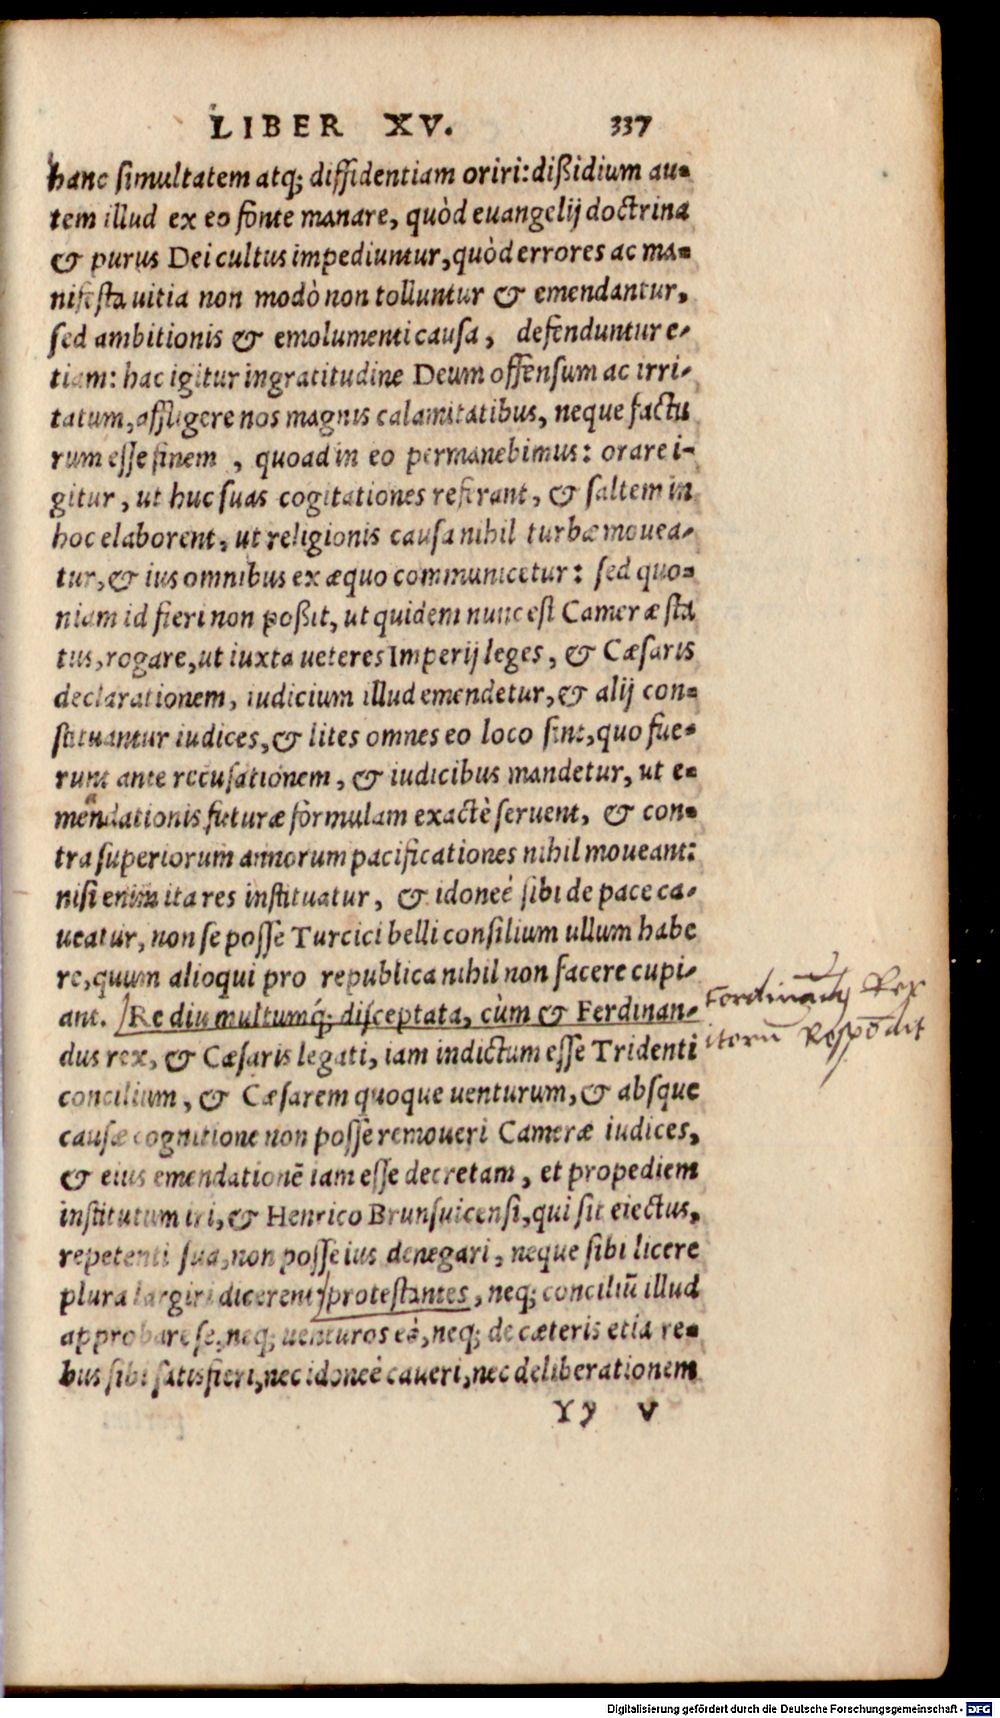 LIBER XV. 337
hanc simultatem atq; diffidentiam oriri: dißidium au-
tem illud ex eo fonte manare, quòd euangelij doctrina
& purus Dei cultus impediuntur, quòd errores ac ma-
nifesta uitia non modò non tolluntur & emendantur,
sed ambitionis & emolumenti causa, defenduntur e-
tiam: hac igitur ingratitudine Deum offensum ac irri-
tatum, affligere nos magnis calamitatibus, neque factu
rum esse finem, quoad in eo permanebimus: orare i-
gitur, ut huc suas cogitationes referant, & saltem in
hoc elaborent, ut religionis causa nihil turbæ mouea-
tur, & ius omnibus ex æquo communicetur: sed quo-
niam id fieri non poßit, ut quidem nunc est Cameræ sta
tus, rogare, ut iuxta ueteres Imperij leges, & Cæsaris
declarationem, iudicium illud emendetur, & alij con-
stituantur iudices, & lites omnes eo loco sint, quo fue-
runt ante recusationem, & iudicibus mandetur, ut e-
mendationis futuræ formulam exactè seruent, & con-
tra superiorum annorum pacificationes nihil moueant:
nisi enim ita res instituatur, & idoneè sibi de pace ca-
ueatur, non se posse Turcici belli consilium ullum habe
re, quum alioqui pro republica nihil non facere cupi-
ant. Re diu multumq́; disceptata, cùm & Ferdinan-
dus rex, & Cæsaris legati, iam indictum esse Tridenti
concilium, & Cæsarem quoque uenturum, & absque
causæ cognitione non posse remoueri Cameræ iudices,
& eius emendationē iam esse decretam, et propediem
institutum iri, & Henrico Brunsuicensi, qui sit eiectus,
repetenti sua, non posse ius denegari, neque sibi licere
plura largiri dicerent, protestantes, neq; conciliū illud
approbare se, neq; uenturos eò, neq; de cæteris etiā re-
bus sibi satisfieri, nec idoneè caueri, nec deliberationem
Yy v
Ferdinandus Rex
iterū Respōdit
Digitalisierung gefördert durch die Deutsche Forschungsgemeinschaft - DFG